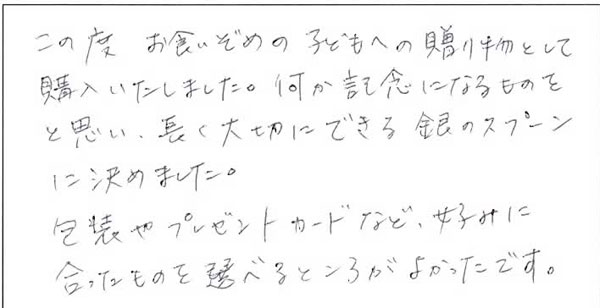 この度 お食いぞめの子どもへの贈り物として
購入いたしました。何か記念になるものを
と思い、長く大切にできる銀のスプーン
に決めました。
包装やプレゼントカードなど、好みに
合ったものを選べるところがよかったです。